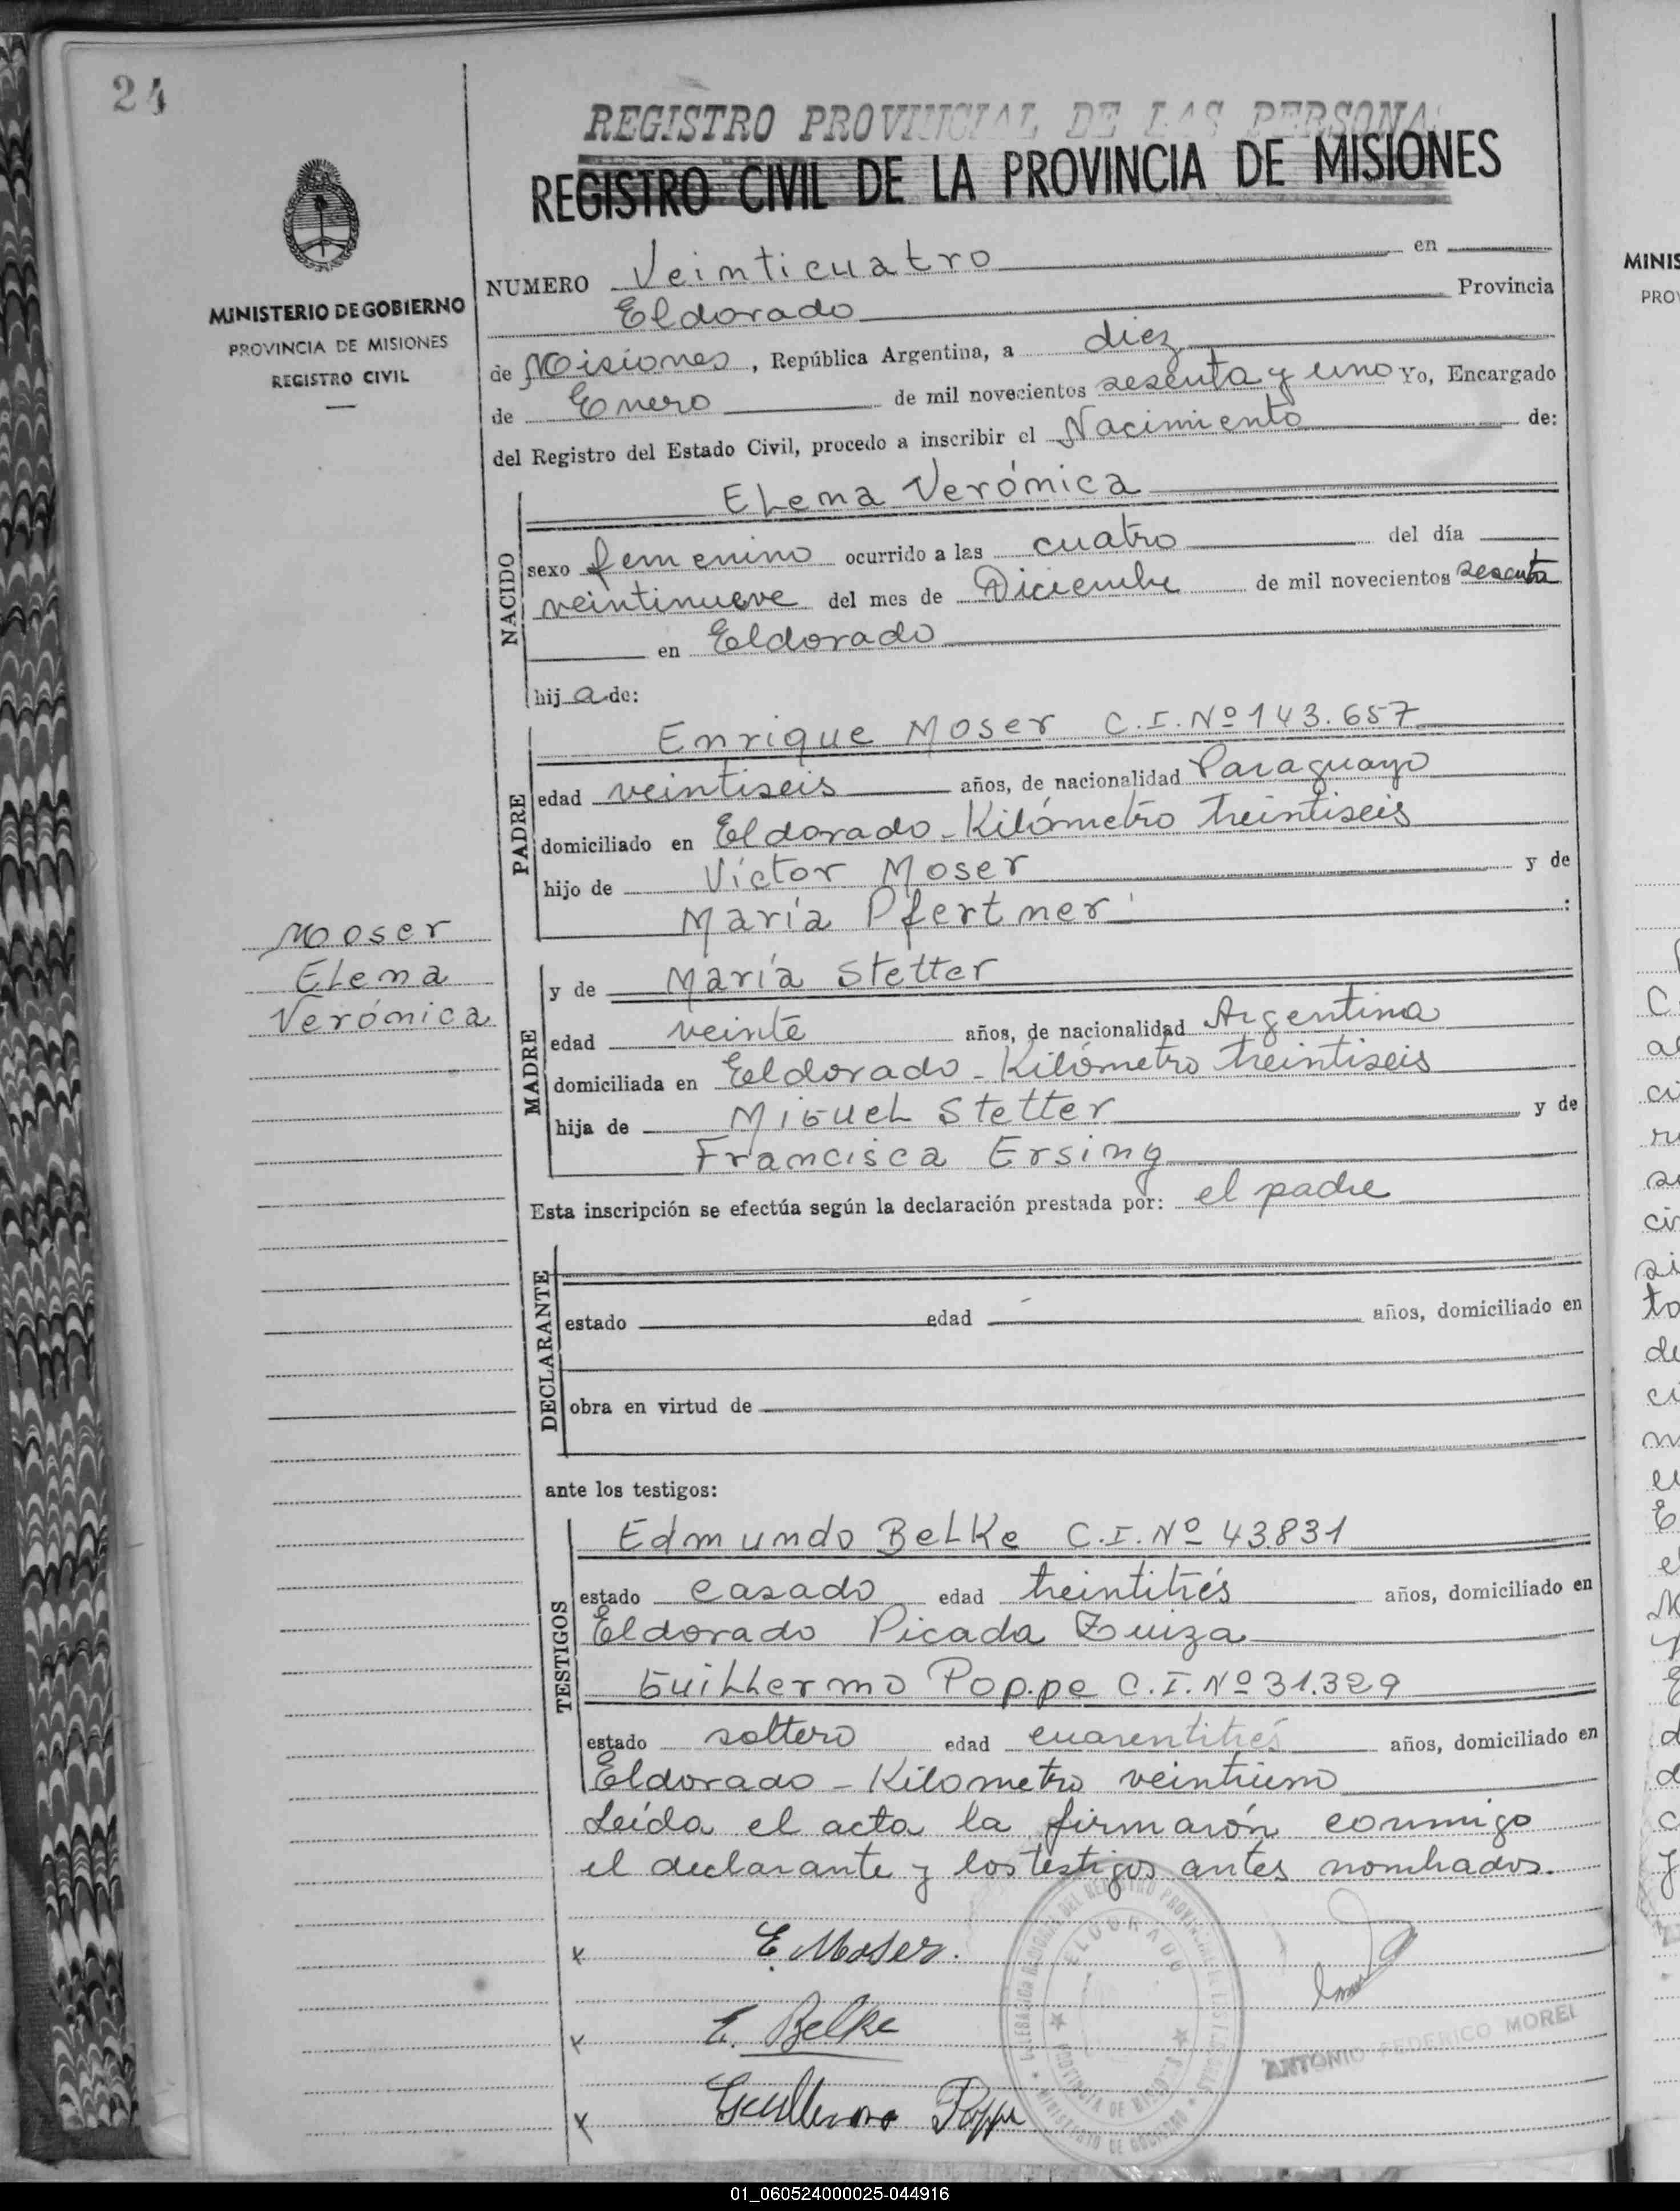 24
REGISTRO PROVINCIAL DE LAS PERSONA
REGISTRO CIVIL DE LA PROVINCIA DE MISIONES
MINISTERIO DE GOBIERNO
PROVINCIA DE MISIONES
REGISTRO CIVIL
NUMERO Veinticuatro en
Eldorado Provincia
de Misiones, República Argentina, a diez
de Enero de mil novecientos sesenta y uno Yo, Encargado
del Registro del Estado Civil, procedo a inscribir el Nacimiento de:
NACIDO
Elena Verónica
sexo femenino ocurrido a las cuatro del día
veintinueve del mes de Diciembre de mil novecientos sesenta
en Eldorado
hij a de:
PADRE
Enrique Moser C.I.Nº 143.657
edad veintiseis años, de nacionalidad Paraguayo
domiciliado en Eldorado - Kilómetro treintiseis
hijo de Víctor Moser y de
María Pfertner :
Moser
Elena
Verónica
MADRE
y de María Stetter
edad veinte años, de nacionalidad Argentina
domiciliada en Eldorado - Kilómetro treintiseis
hija de Miguel Stetter y de
Francisca Ersing
Esta inscripción se efectúa según la declaración prestada por: el padre
DECLARANTE
estado edad años, domiciliado en
obra en virtud de
ante los testigos:
TESTIGOS
Edmundo Belke C.I.Nº 43831
estado casado edad treintitrés años, domiciliado en
Eldorado Picada Zuiza
Guillermo Poppe C.I.Nº 31.329
estado soltero edad cuarentitrés años, domiciliado en
Eldorado - Kilometro veintiuno
Leída el acta la firmarón conmigo
el declarante y los testigos antes nombrados.
x E. Moser.
x E. Belke
x Guillermo Poppe
ELDORADO
PROVINCIA DE MISIONES
MINISTERIO DE GOBIERNO
ANTONIO FEDERICO MOREL
01_060524000025-044916